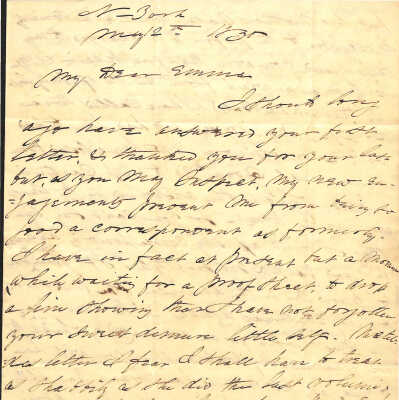 N-York
May 2nd 1835
My Dear Emma
I should long
ago have answered your first
letter, & thanked you for your last
but, as you may suspect, my new en-
-gagements prevent me from being so
good a correspondent as formerly.
I have in fact at present but a moment
while waiting for a proof sheet, to drop
a line showing that I have not forgotten
your sweet demure little self.
letter I fear I shall have to treat
as shabbily as she did the last volume,